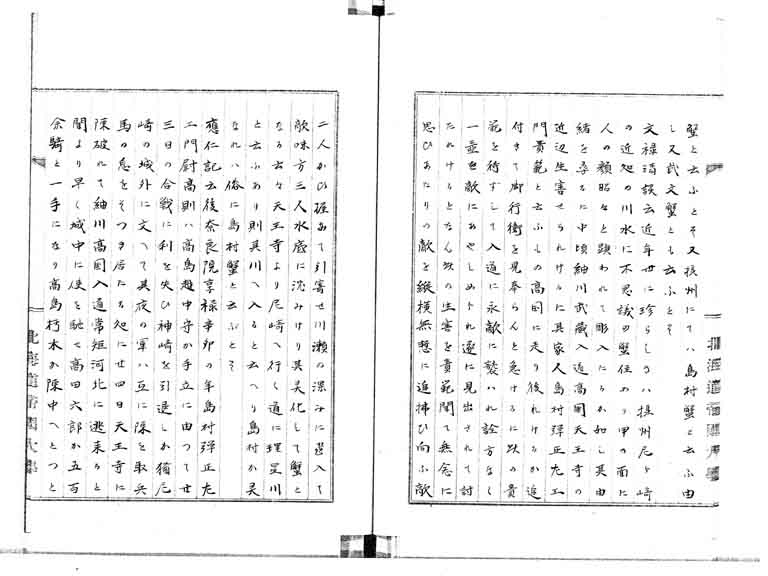 蟹と云ふとそ又摂州にてハ島村蟹と云ふ由
し又武文蟹とも云ふとそ
文禄清談云近年世に珍らしきハ摂州尼ヶ崎
の近処の川水に不思議の蟹住めり甲の面に
人の顔昭々と顕われて彫入たるか如し其由
緒を尋るに中頃細川武蔵入道高国天王寺の
近辺生害せられけるに其家人島村弾正左エ
門貴範と云ふもの高国に走り後れけるか追
付きて御行衛を見奉らんと急けるに跡の貴
範を待すして入道に永敵に襲ハれ詮方なく
一壺を敵にあやしめられ遂に見出されて討
たれけるとなん此の生害を貴範聞て無念に
思ひあたりの敵を縦横無尽に追拂ひ向ふ敵
二人かひ砸ミて引寄せ川瀬の深みに選入て
敵味方三人水底に沈みけり其灵化して蟹と
なる云々天王寺より尼崎へ行く道に理星川
と云ふあり則其川へ入ると云へり島村か灵
なれハ俗に島村蟹と云ふとそ
應仁記云後奈良院享禄辛卯の年島村弾正左
エ門尉高則ハ高島越中守か手立に由つて廿
三日の合戦に利を失ひ神崎を引退しか猶尼
崎の城外に文へて其夜の軍ハ互に陳を取兵
馬の息をそつき居たる処に廿四日天王寺に
陳破れて細川高国入道常短河北に逃来ると
聞より早く城中に使を馳せ高田六郎か五百
余騎と一手になり高島朽木か陳中へとつと